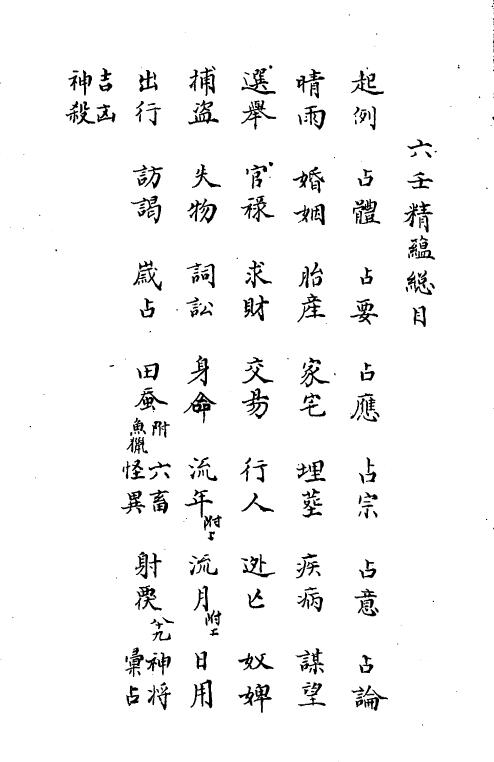 六壬精蘊総目
起例 占體 占要 占應 占宗 占意 占論
晴雨 婚姻 胎產 家宅 埋塟 疾病 謀望
選舉 官祿 求財 交易 行人 迯亡 奴婢
捕盜 失物 詞訟 身命 流年附上 流月附上 日用
出行 訪謁 歲占 田蚕附魚獵 六畜怪異 射覆 神將彙占
吉凶神殺